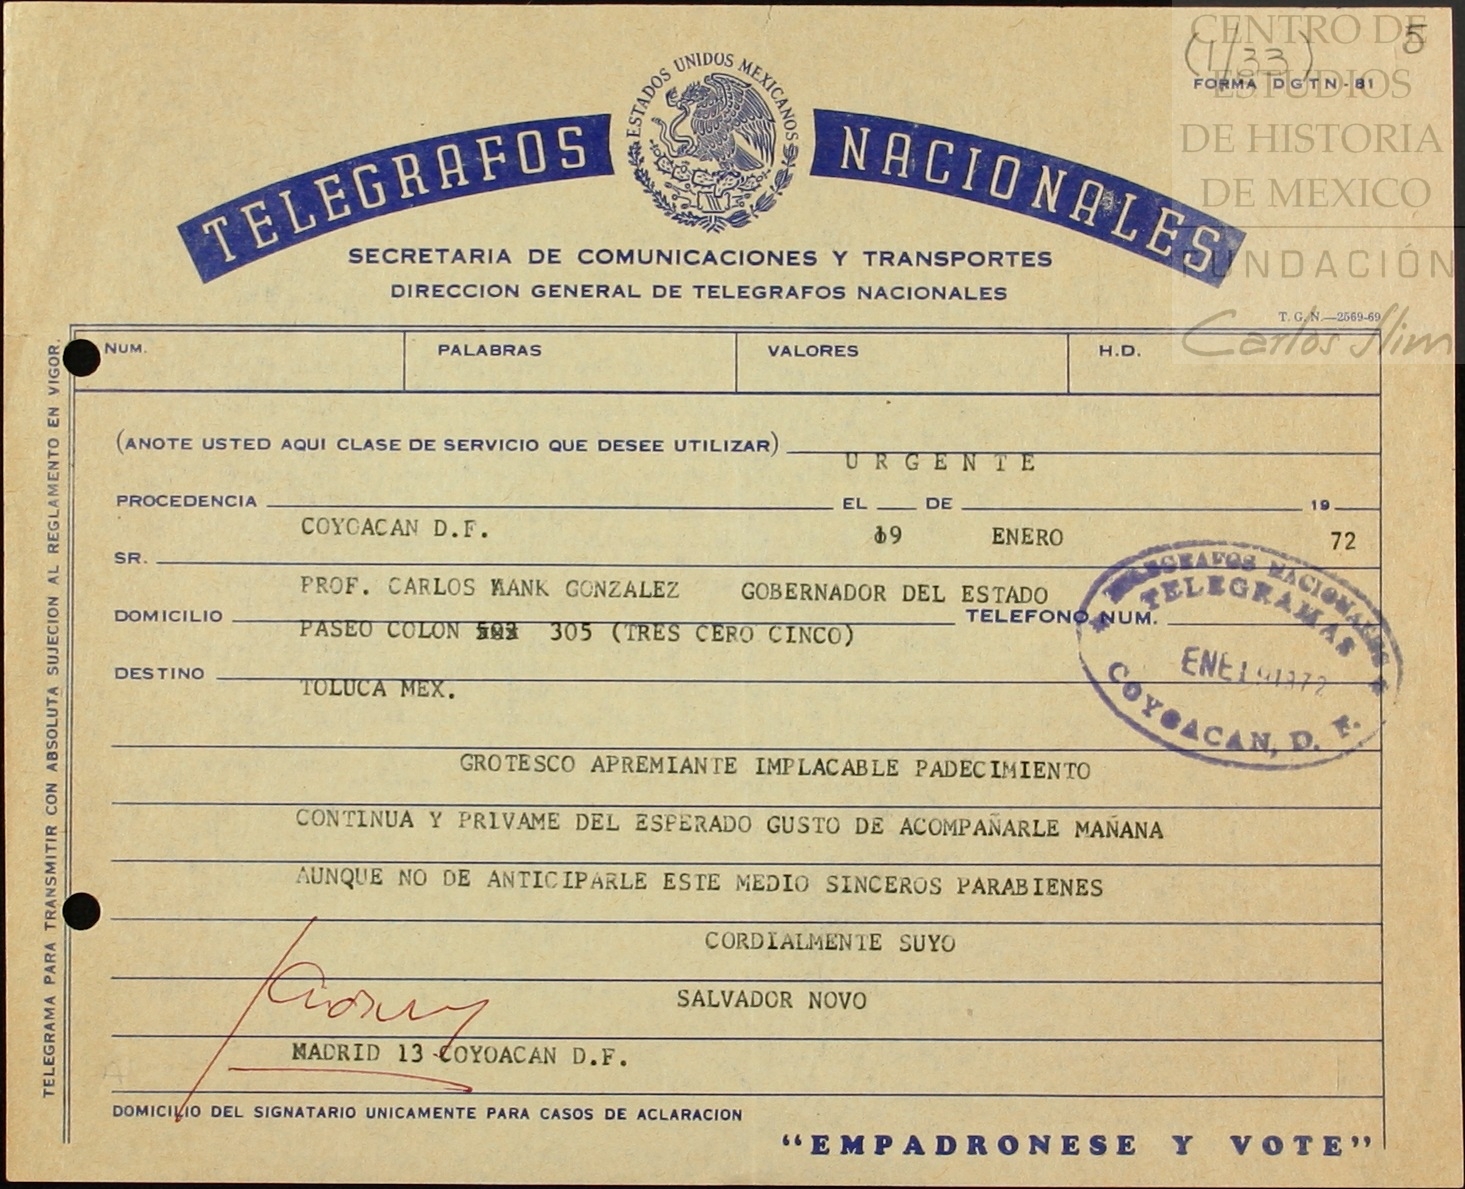 CENTRO DE
ESTUDIOS
DE HISTORIA
DE MEXICO
FUNDACIÓN
Carlos Slim
5
(1/33)
FORMA DGTN-81
ESTADOS UNIDOS MEXICANOS
TELEGRAFOS NACIONALES
SECRETARIA DE COMUNICACIONES Y TRANSPORTES
DIRECCION GENERAL DE TELEGRAFOS NACIONALES
T. G. N.—2569-69
NUM. PALABRAS VALORES H.D.
(ANOTE USTED AQUI CLASE DE SERVICIO QUE DESEE UTILIZAR)
URGENTE
PROCEDENCIA EL DE 19
COYOACAN D.F. 19 ENERO 72
SR.
PROF. CARLOS HANK GONZALEZ GOBERNADOR DEL ESTADO
DOMICILIO TELEFONO NUM.
PASEO COLON 305 (TRES CERO CINCO)
DESTINO
TOLUCA MEX.
TELEGRAFOS NACIONALES
TELEGRAMAS
ENE 19 1972
COYOACAN, D. F.
GROTESCO APREMIANTE IMPLACABLE PADECIMIENTO
CONTINUA Y PRIVAME DEL ESPERADO GUSTO DE ACOMPAÑARLE MAÑANA
AUNQUE NO DE ANTICIPARLE ESTE MEDIO SINCEROS PARABIENES
CORDIALMENTE SUYO
SALVADOR NOVO
MADRID 13 COYOACAN D.F.
DOMICILIO DEL SIGNATARIO UNICAMENTE PARA CASOS DE ACLARACION
"EMPADRONESE Y VOTE"
TELEGRAMA PARA TRANSMITIR CON ABSOLUTA SUJECION AL REGLAMENTO EN VIGOR.